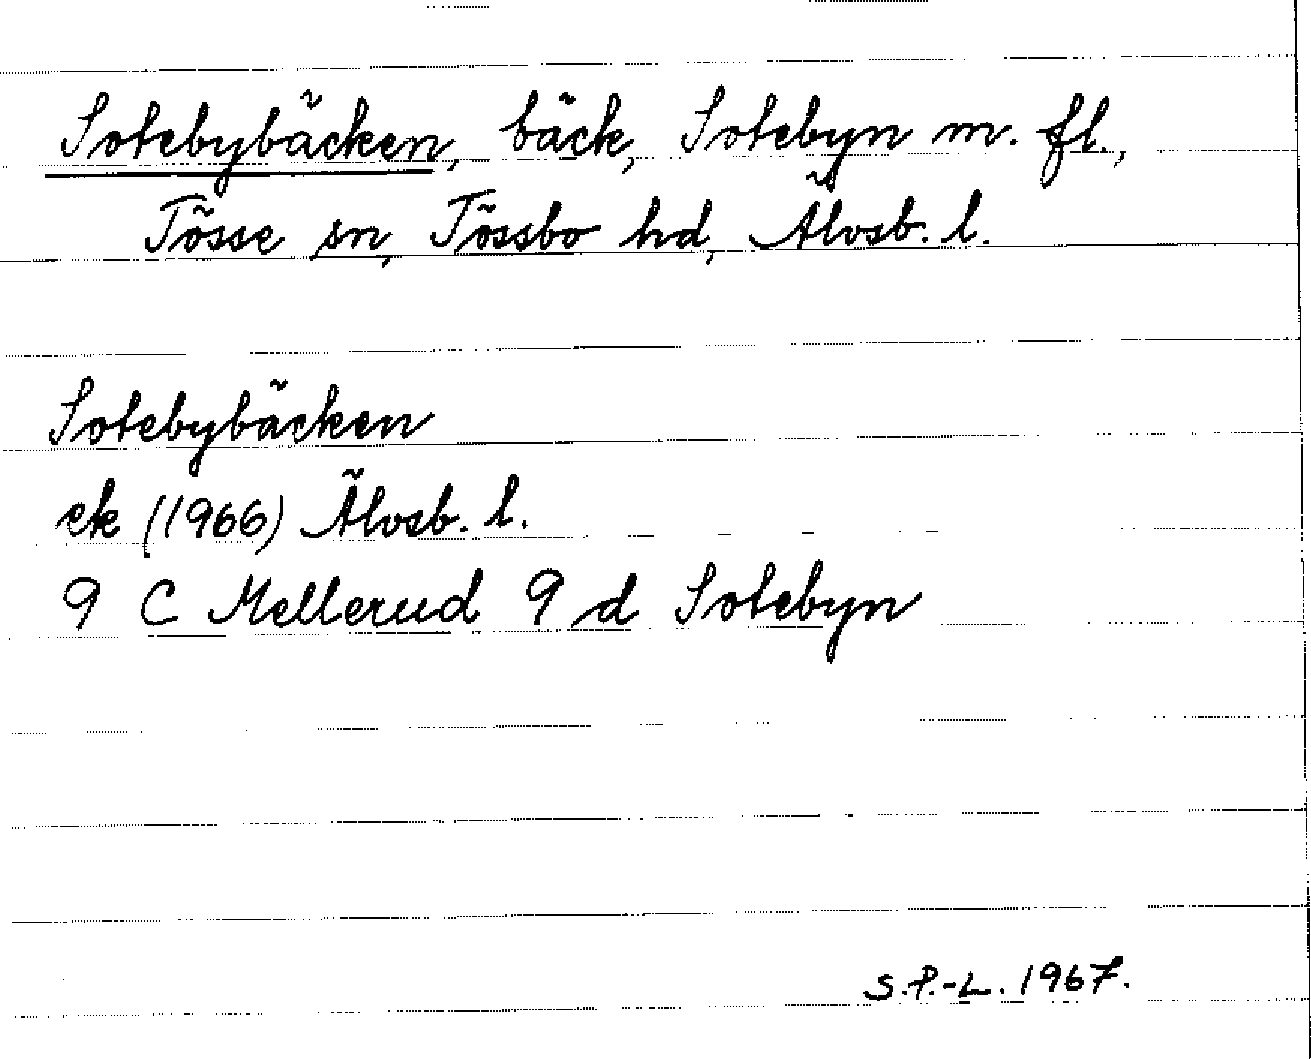 Sotebybäcken, bäck, Sotebyn m. fl.,
Tösse sn, Tössbo hd, Älvsb. l.
Sotebybäcken
ek (1966) Älvsb. l.
9 C Mellerud 9 d Sotebyn
S.P.-L. 1967.